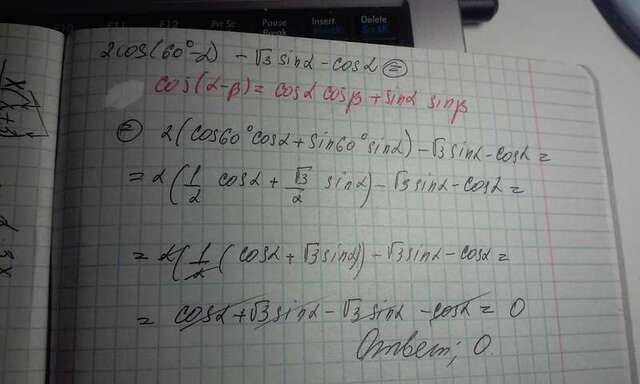 F11 F12 Prt Sc Pause Break Insert Delete
2cos(60°-α) - √3 sinα - cosα =
cos(α-β) = cosα cosβ + sinα sinβ
= 2(cos60°cosα + sin60°sinα) - √3 sinα - cosα =
= 2(1/2 cosα + √3/2 sinα) - √3 sinα - cosα =
= 2(1/2 (cosα + √3 sinα)) - √3 sinα - cosα =
= cosα + √3 sinα - √3 sinα - cosα = 0
Ответ: 0.